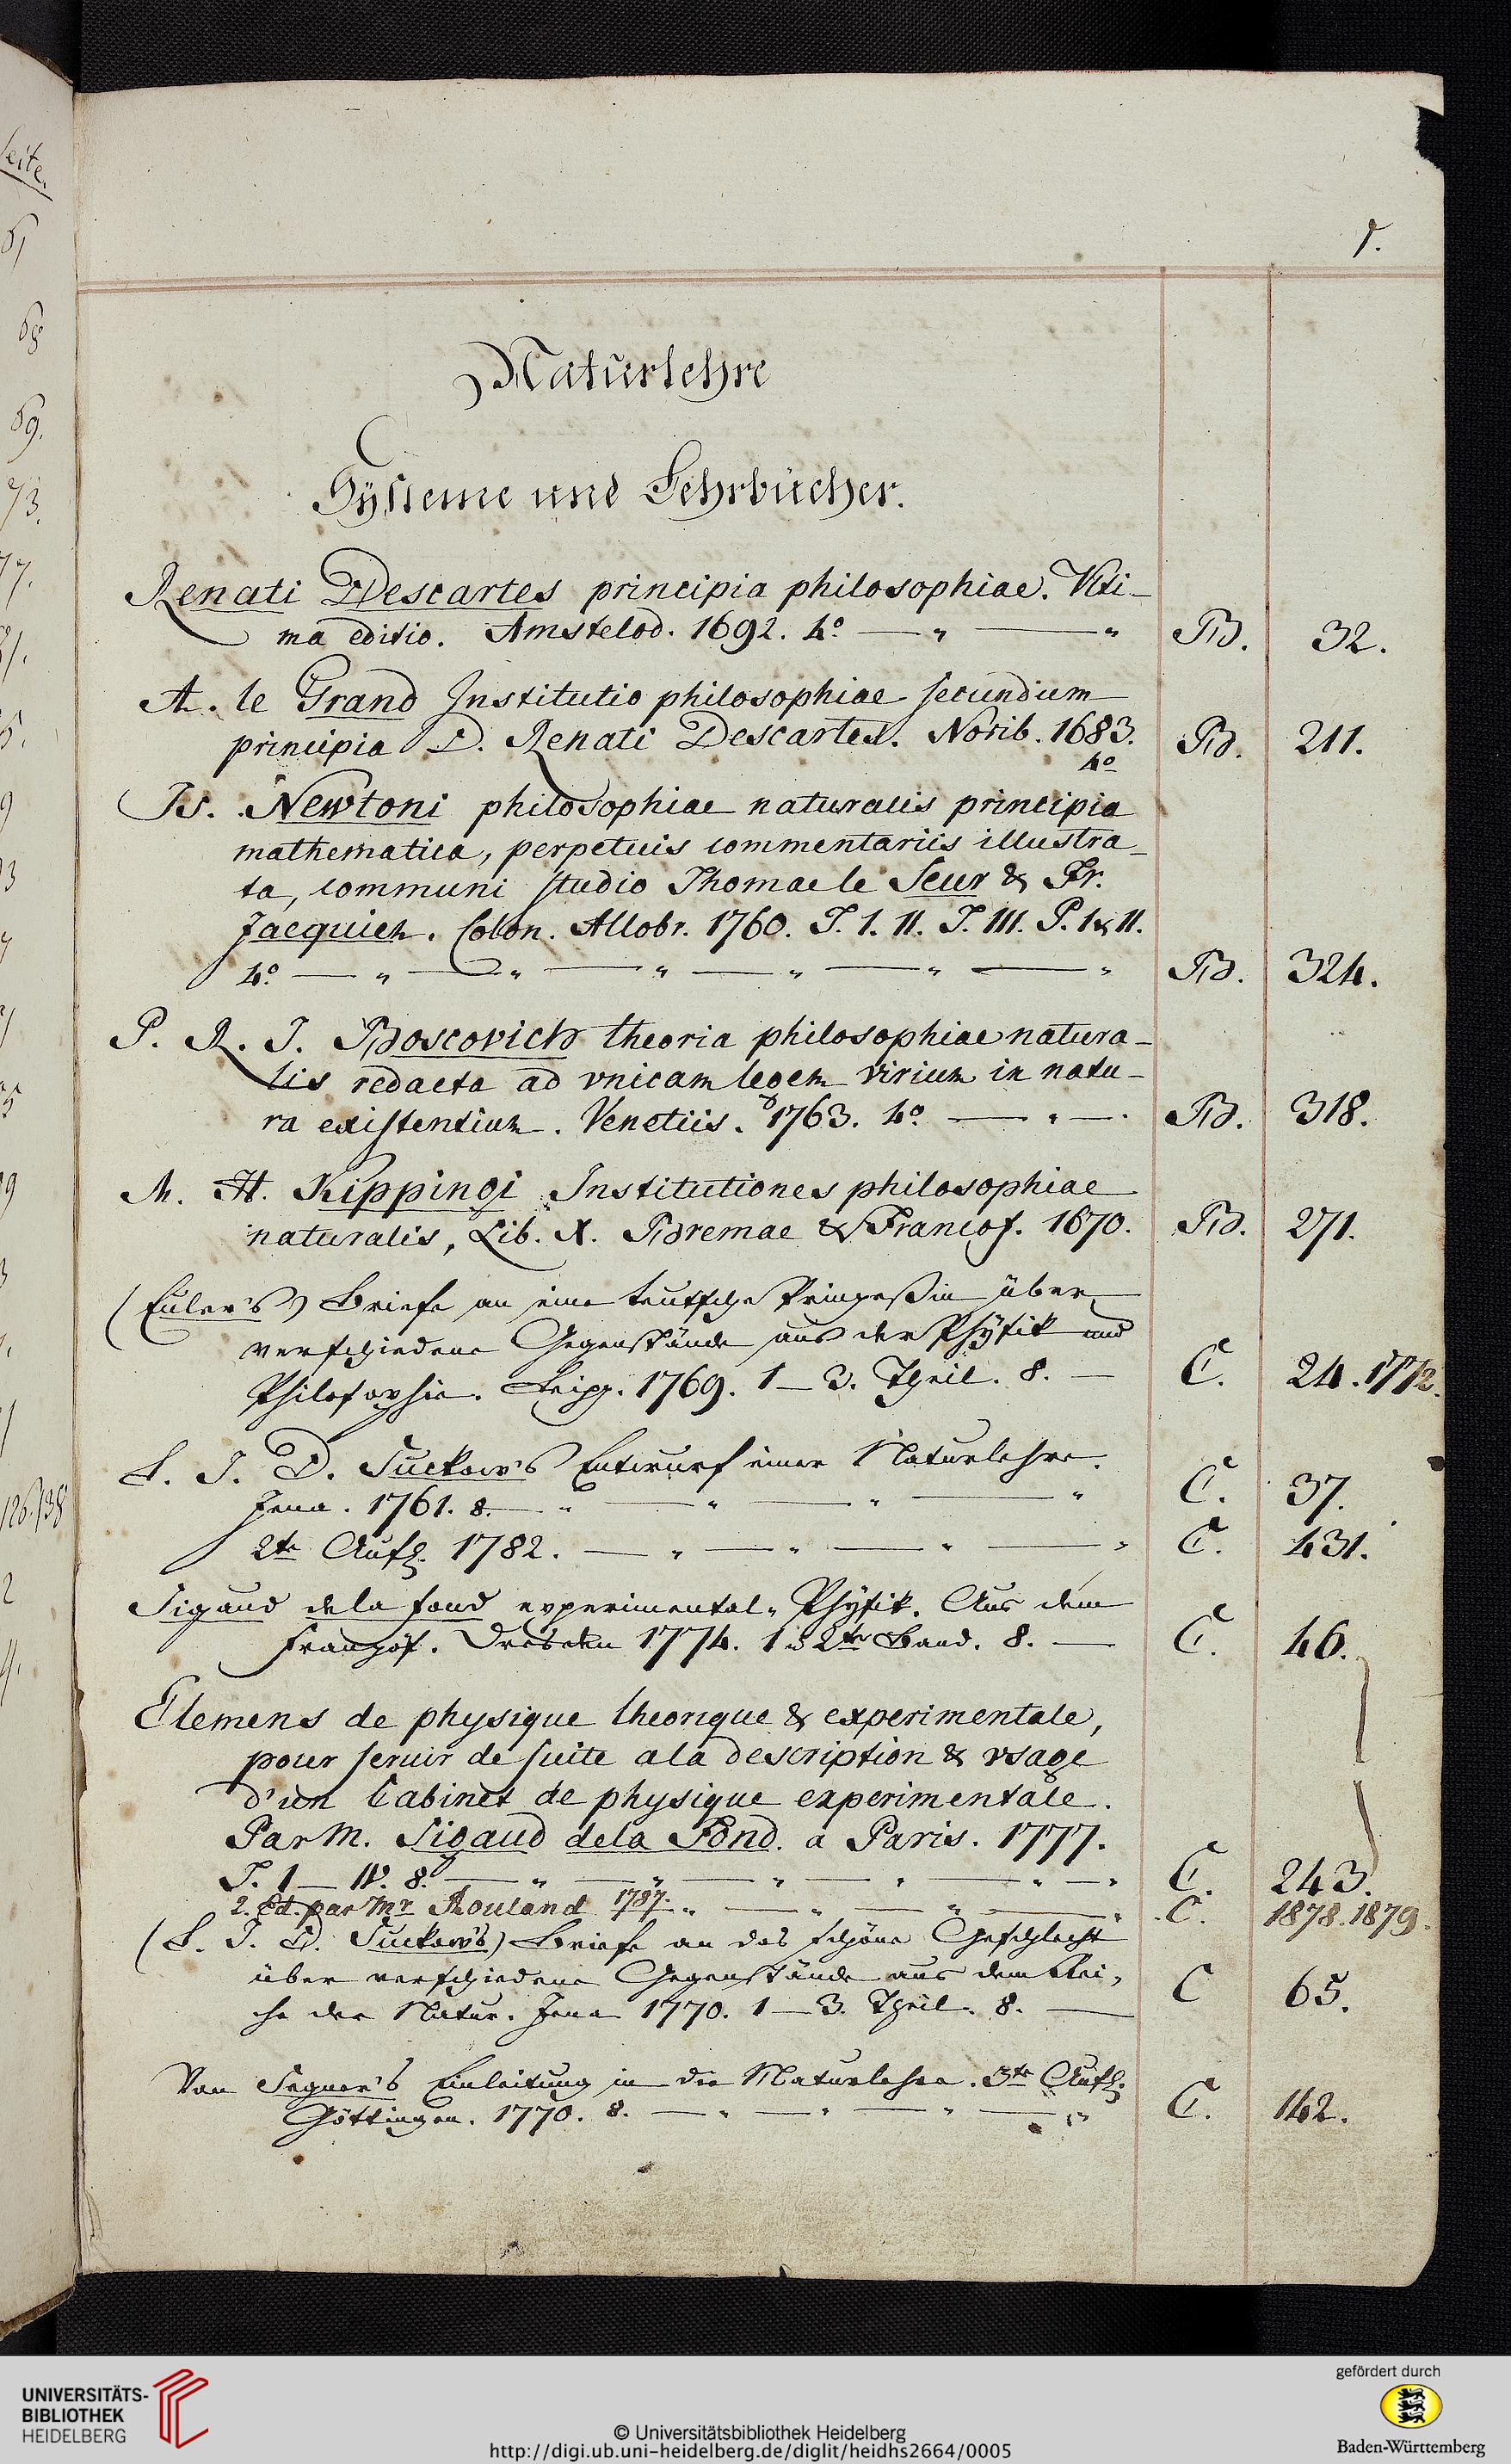 Seite.
61
68
69.
73.
77.
126.138
1.
Naturlehre
Systeme und Lehrbücher.
Renati Descartes principia philosophiae. Vlti-
ma editio. Amstelod. 1692. 4º — " — " B. 32.
A. le Grand Institutio philosophiae secundum
principia D. Renati Descartes. Norib. 1683. B. 211.
4º
Is. Newtoni philosophiae naturalis principia
mathematica, perpetuis commentariis illustra-
ta, communi studio Thomae le Seur & Fr.
Jacquieh. Colon. Allobr. 1760. T. I. II. T. III. P. I & II.
4º — " — " — " — " — " — " B. 324.
P. R. J. Boscovich theoria philosophiae natura-
lis redacta ad vnicam legem virium in natu-
ra existentium. Venetiis. 1763. 4º — " — . B. 318.
M. H. Kippingi Institutiones philosophiae
naturalis, Lib. X. Bremae & Francof. 1670. B. 271.
(Euler's) Briefe an eine teutsche Prinzeßin über
verschiedene Gegenstände aus der Physik und
Philosophie. Leipz. 1769. 1 — 3. Theil. 8. — C. 24. 1772.
L. J. D. Suckow's Entwurf einer Naturlehre.
Jena. 1761. 8. — " — " — " — " C. 37.
2te Aufl. 1782. — " — " — " — " C. 431.
Sigaud de la fond experimental-Physik. Aus dem
Französ. Dresden 1774. 1 & 2ter Band. 8. — C. 46.
Elemens de physique theorique & experimentale,
pour seruir de suite a la description & vsage
d'un Cabinet de physique experimentale.
Par M. Sigaud de la Fond. a Paris. 1777.
T. I — IV. 8. — " — " — " — " — " — " C. 243.
2. Ed. par Mr Rouland 1787. " — " — " — " C. 1878. 1879.
(L. J. D. Suckow's) Briefe an das schöne Geschlecht
über verschiedene Gegenstände aus dem Rei-
che der Natur. Jena 1770. 1 — 3. Theil. 8. — C 65.
Von Segner's Einleitung in die Naturlehre. 3te Aufl.
Göttingen. 1770. 8. — " — " — " — " C. 142.
UNIVERSITÄTS-
BIBLIOTHEK
HEIDELBERG
© Universitätsbibliothek Heidelberg
http://digi.ub.uni-heidelberg.de/diglit/heidhs2664/0005
gefördert durch
Baden-Württemberg